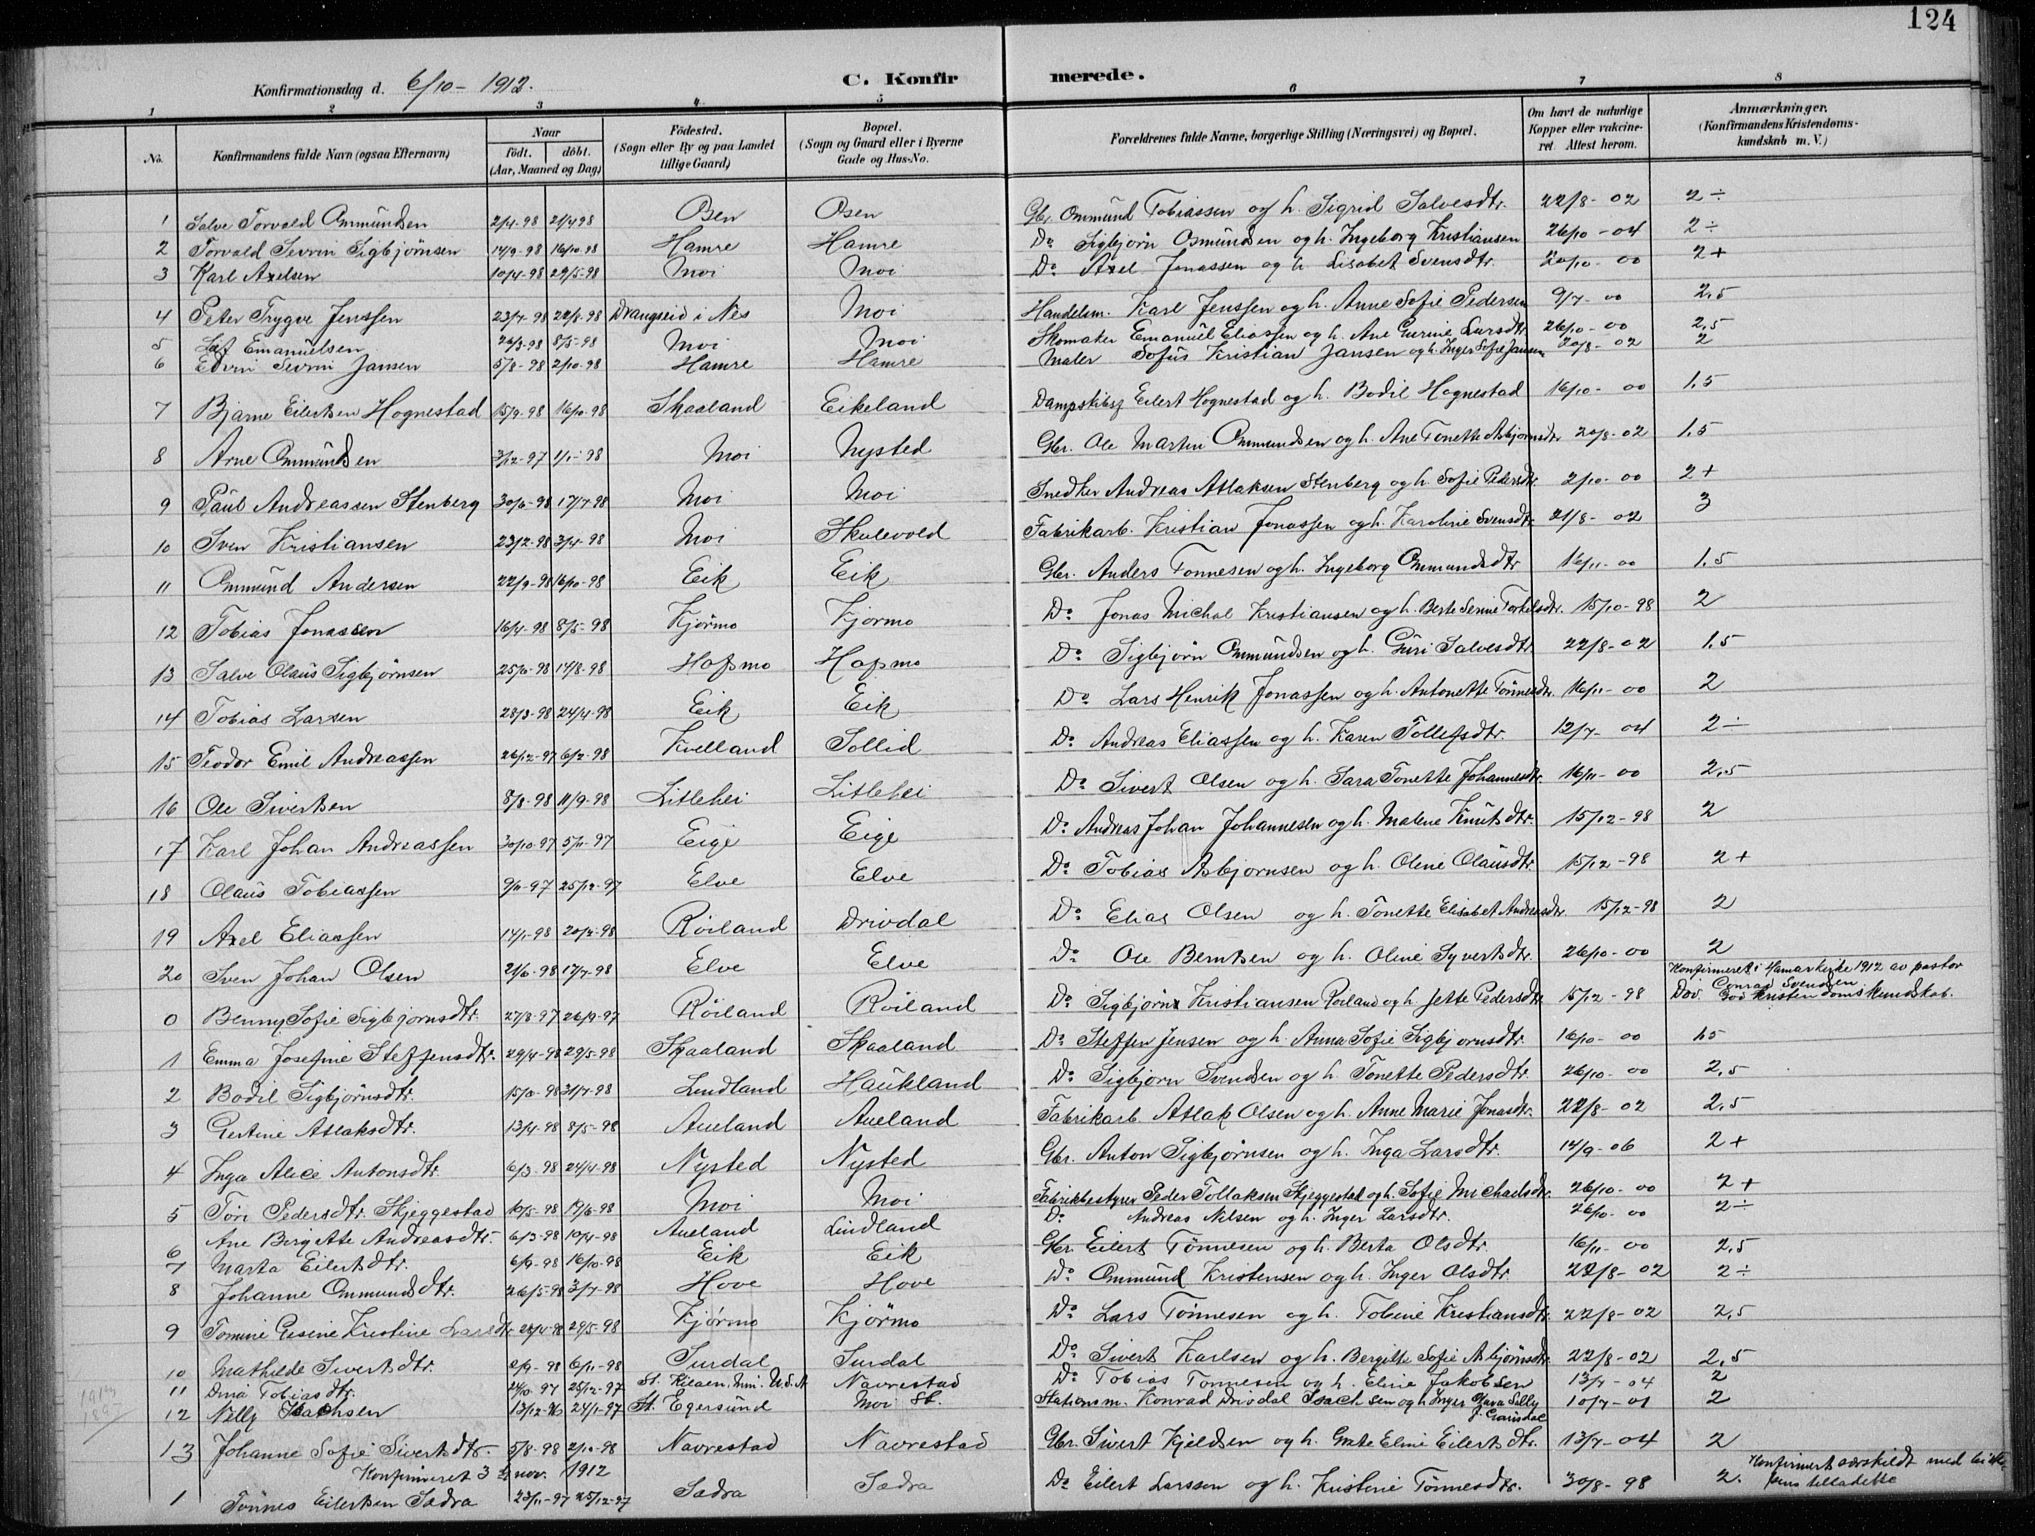 124
Konfirmationsdag d. 6/10 - 1912.
C. Konfirmerede.
1 2 3 4 5 6 7 8
No. Konfirmandens fulde Navn (ogsaa Efternavn) Naar født. døbt. (Aar, Maaned og Dag) Födested. (Sogn eller By og paa Landet tillige Gaard) Bopæl. (Sogn og Gaard eller i Byerne Gade og Hus-No. Forældrenes fulde Navne, borgerlige Stilling (Næringsvei) og Bopæl. Om havt de naturlige Kopper eller vakcineret. Attest herom. Anmærkninger. (Konfirmandens Kristendomskundskab m. V.)
1 Salve Torvald Ommundsen 2/4-98 21/4 98 Osen Osen Gbr. Ommund Tobiassen og h. Sigrid Salvesdtr. 22/8-02 2÷
2 Torvald Sevrin Sigbjörnsen 14/9-98 16/10-98 Hamre Hamre Do Sigbjörn Osmundsen og h. Ingeborg Kristiansen 26/10-04 2÷
3 Karl Axelsen 10/4-98 29/5-98 Moi Moi Do Axel Jonassen og h Lisabet Svensdtr. 20/10-00 2+
4 Peter Trygve Jenssen 23/4-98 22/8-98 Drangseid i Nes Moi Handelsm. Karl Jenssen og h. Anne Sofie Pedersen 9/7-00 2,5
5 Emanuelsen 26/3-98 8/5-98 Moi Moi Skomaker Emanuel Eliassen og h. Ane Gurine Larsdtr. 26/10-00 2,5
6 Edvin Sevrin Jansen 5/8-98 2/10-98 Hamre Hamre Maler Sofus Kristian Jansen og h. Inger Sofie Jansen 20/8-02 2
7 Bjarne Eilertsen Hognestad 15/9-98 16/10-98 Skaaland Eikeland Dampskibsf Eilert Hognestad og h. Bodil Hognestad 16/10-00 1,5
8 Arne Ommundsen 3/12-97 1/1-98 Moi Nysted Gbr. Ole Martin Ommundsen og h. Ane Tonette Asbjörnsdtr 20/8-02 1,5
9 Paul Andreassen Stenberg 30/6-98 17/7-98 Moi Moi Snedker Andreas Atlaksen Stenberg og h. Sofie Pedersdtr. 2/10-00 2+
10 Sven Kristiansen 23/2-98 3/4-98 Moi Skulevold Fabrikarb. Kristian Jonassen og h. Karoline Svensdtr. 21/8-02 3
11 Ommund Andersen 22/9-98 16/10-98 Eik Eik Gbr. Anders Tonnesen og h. Ingeborg Ommundsdtr 16/11-00 1,5
12 Tobias Jonassen 16/4-98 8/5-98 Kjörmo Kjörmo Do Jonas Michal Kristiansen og h. Berte Serine Torkelsdtr. 15/10-98 2
13 Salve Olaus Sigbjörnsen 25/6-98 17/8-98 Hafsmo Hafsmo Do Sigbjörn Ommundsen og h. Guri Salvesdtr. 22/8-02 1,5
14 Tobias Larsen 28/3-98 24/4-98 Eik Eik Do Lars Henrik Jonassen og h. Antonette Tönnesdtr. 16/11-00 2
15 Teodor Emil Andreassen 26/12-97 6/2-98 Kvelland Sollid Do Andreas Eliassen og h. Karen Tollefsdtr. 12/7-04 2÷
16 Ole Sivertsen 8/8-98 11/9-98 Litlehei Litlehei Do Sivert Olsen og h. Sara Tonette Johannesdtr. 16/11-00 2,5
17 Karl Johan Andreassen 30/10-97 5/11-97 Eige Eige Do Andreas Johan Johannesen og h. Malene Knutsdtr. 15/12-98 2
18 Olaus Tobiassen 9/11-97 25/12-97 Elve Elve Do Tobias Asbjornsen og h. Oline Olausdtr. 15/12-98 2+
19 Axel Eliassen 14/1-98 20/2-98 Röiland Drivdal Do Elias Olsen og h. Tonette Elisabet Andreasdtr. 15/12-98 2
20 Sven Johan Olsen 21/6-98 17/7-98 Elve Elve Do Ole Berntsen og h. Oline Syvertsdtr. 26/10-00 2
0 Benny Sofie Sigbjornsdtr. 27/8-97 26/9-97 Röiland Röiland Do Sigbjörn Kristiansen Röiland og h. Jette Pedersdtr 15/12-98 Konfirmeret i Hamarkirke 1912 av pastor Conrad Svendsen Döv. God kristendomskundskab.
1 Emma Josefine Steffensdtr. 29/4-98 29/5-98 Skaaland Skaaland Do Steffen Jensen og h. Anna Sofie Sigbjornsdtr. 16/10-00 1,5
2 Bodil Sigbjörnsdtr. 15/6-98 31/7-98 Lindland Haukland Do Sigbjorn Svendsen og h. Tonette Pedersdtr. 26/10-00 2,5
3 Gertine Atlaksdtr. 13/4-98 8/5-98 Aueland Aueland Fabrikarb. Atlak Olsen og h. Anne Marie Jonasdtr. 22/8-02 2,5
4 Inga Alice Antonsdtr. 6/3-98 24/4-98 Nysted Nysted Gbr. Anton Sigbjörnsen og h. Inga Larsdtr. 14/9-06 2+
5 Tori Pedersdtr. Skjeggestad 10/5-98 19/6-98 Moi Moi Fabrikbestyrer Peder Tollaksen Skjeggestad og h. Sofie Michaelsdtr. 26/10-00 2+
6 Ane Birgitte Andreasdtr. 6/3-98 10/4-98 Aueland Lindland Do Andreas Nilsen og h. Inger Larsdtr. 26/10-00 2÷
7 Marta Eilertsdtr. 6/9-98 16/10-98 Eik Eik Gbr. Eilert Tönnesen og h. Berta Olsdtr. 16/11-00 2,5
8 Johanne Ommundsdtr. 26/5-98 3/7-98 Hove Hove Do Ommund Kristensen og h. Inger Olsdtr. 22/8-02 2÷
9 Tomine Gesine Kristine Larsdtr 28/4-98 29/5-98 Kjørmo Kjørmo Do Lars Tönnesen og h. Tobine Kristiansdtr 22/8-02 2,5
10 Mathilde Sivertsdtr. 2/9-98 6/11-98 Surdal Surdal Do Sivert Karlsen og h. Bergitte Sofie Asbjörnsdtr. 22/8-02 2,5
11 Dina Tobiasdtr. 24/10-97 25/12-97 St. Hilaen. Min. U.S.A Navrestad Do Tobias Tonnesen og h. Eline Jakobsen 13/7-04 2
12 Nelly Isachsen 13/12-96 24/1-97 St. Egersund Moi St. Stationsm. Konrad Drivdal Isachsen og h. Inger Olava Selly 10/7-01 2
13 Johanne Sofie Sivertsdtr. 5/8-98 2/10-98 Navrestad Navrestad Gbr. Sivert Kjeldsen og h. Grete Eline Eilertsdtr. 13/7-04 2
Konfirmeret 3 nov. 1912
1 Tönnes Eilertsen Sædra 23/11-97 25/12-97 Sædra Sædra Do Eilert Larssen og h. Kristine Tönnesdtr. 30/8-98 2. Konfirmert særskildt med biskopens tilladelse